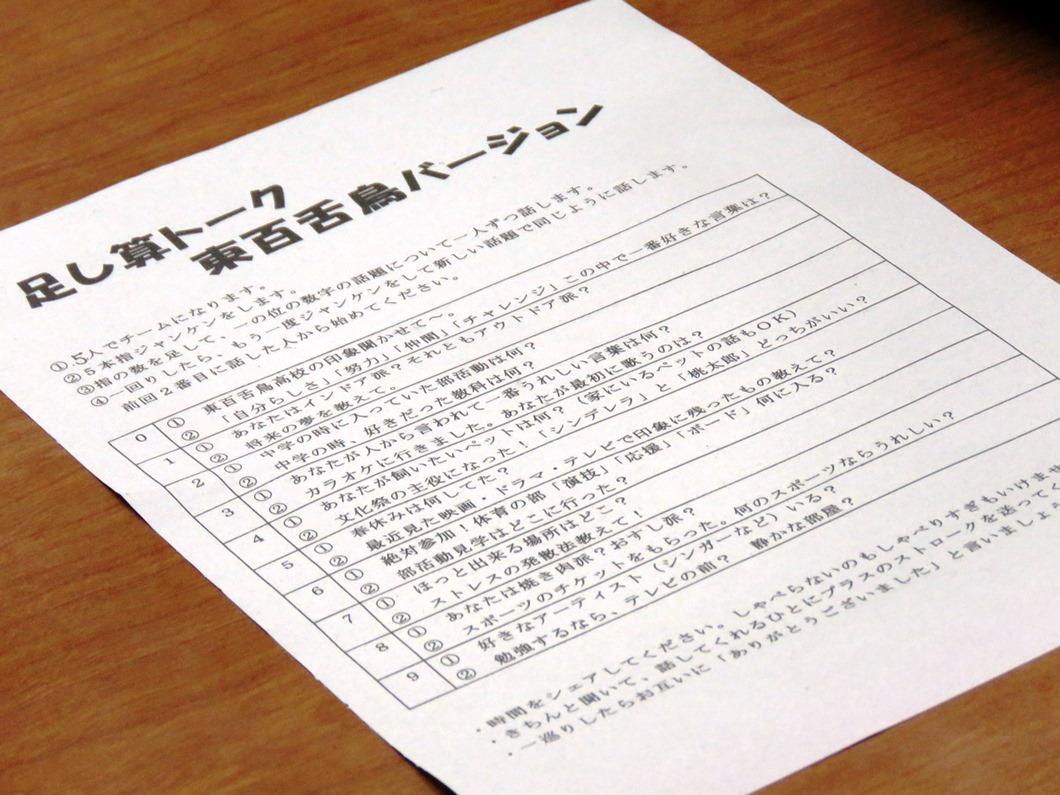 足し算トーク
東百舌鳥バージョン
①5人でチームになります。
②5本指ジャンケンをします。
③指の数を足して、一の位の数字の話題について一人ずつ話します。
④一回りしたら、もう一度ジャンケンをして新しい話題で同じように話します。
前回2番目に話した人から始めてください。
0
① 東百舌鳥高校の印象聞かせて~。
② 「自分らしさ」「努力」「仲間」「チャレンジ」この中で一番好きな言葉は?
1
① あなたはインドア派?それともアウトドア派?
② 将来の夢を教えて。
2
① 中学の時に入っていた部活動は何?
② 中学の時、好きだった教科は何?
3
① あなたが人から言われて一番うれしい言葉は何?
② カラオケに行きました。あなたが最初に歌うのは?
4
① あなたが飼いたいペットは何?(家にいるペットの話もOK)
② 文化祭の主役になった!「シンデレラ」と「桃太郎」どっちがいい?
5
① 春休みは何してた?
② 最近見た映画・ドラマ・テレビで印象に残ったもの教えて?
6
① 絶対参加!体育の部「演技」「応援」「ボード」何に入る?
② 部活動見学はどこに行った?
7
① ほっと出来る場所はどこ?
② ストレスの発散法教えて!
8
① あなたは焼き肉派?おすし派?
② スポーツのチケットをもらった。何のスポーツならうれしい?
9
① 好きなアーティスト(シンガーなど)いる?
② 勉強するなら、テレビの前? 静かな部屋?
・時間をシェアしてください。しゃべらないのもしゃべりすぎもいけませ
・きちんと聞いて、話してくれるひとにプラスのストロークを送って
・一巡りしたらお互いに「ありがとうございました」と言いましょ